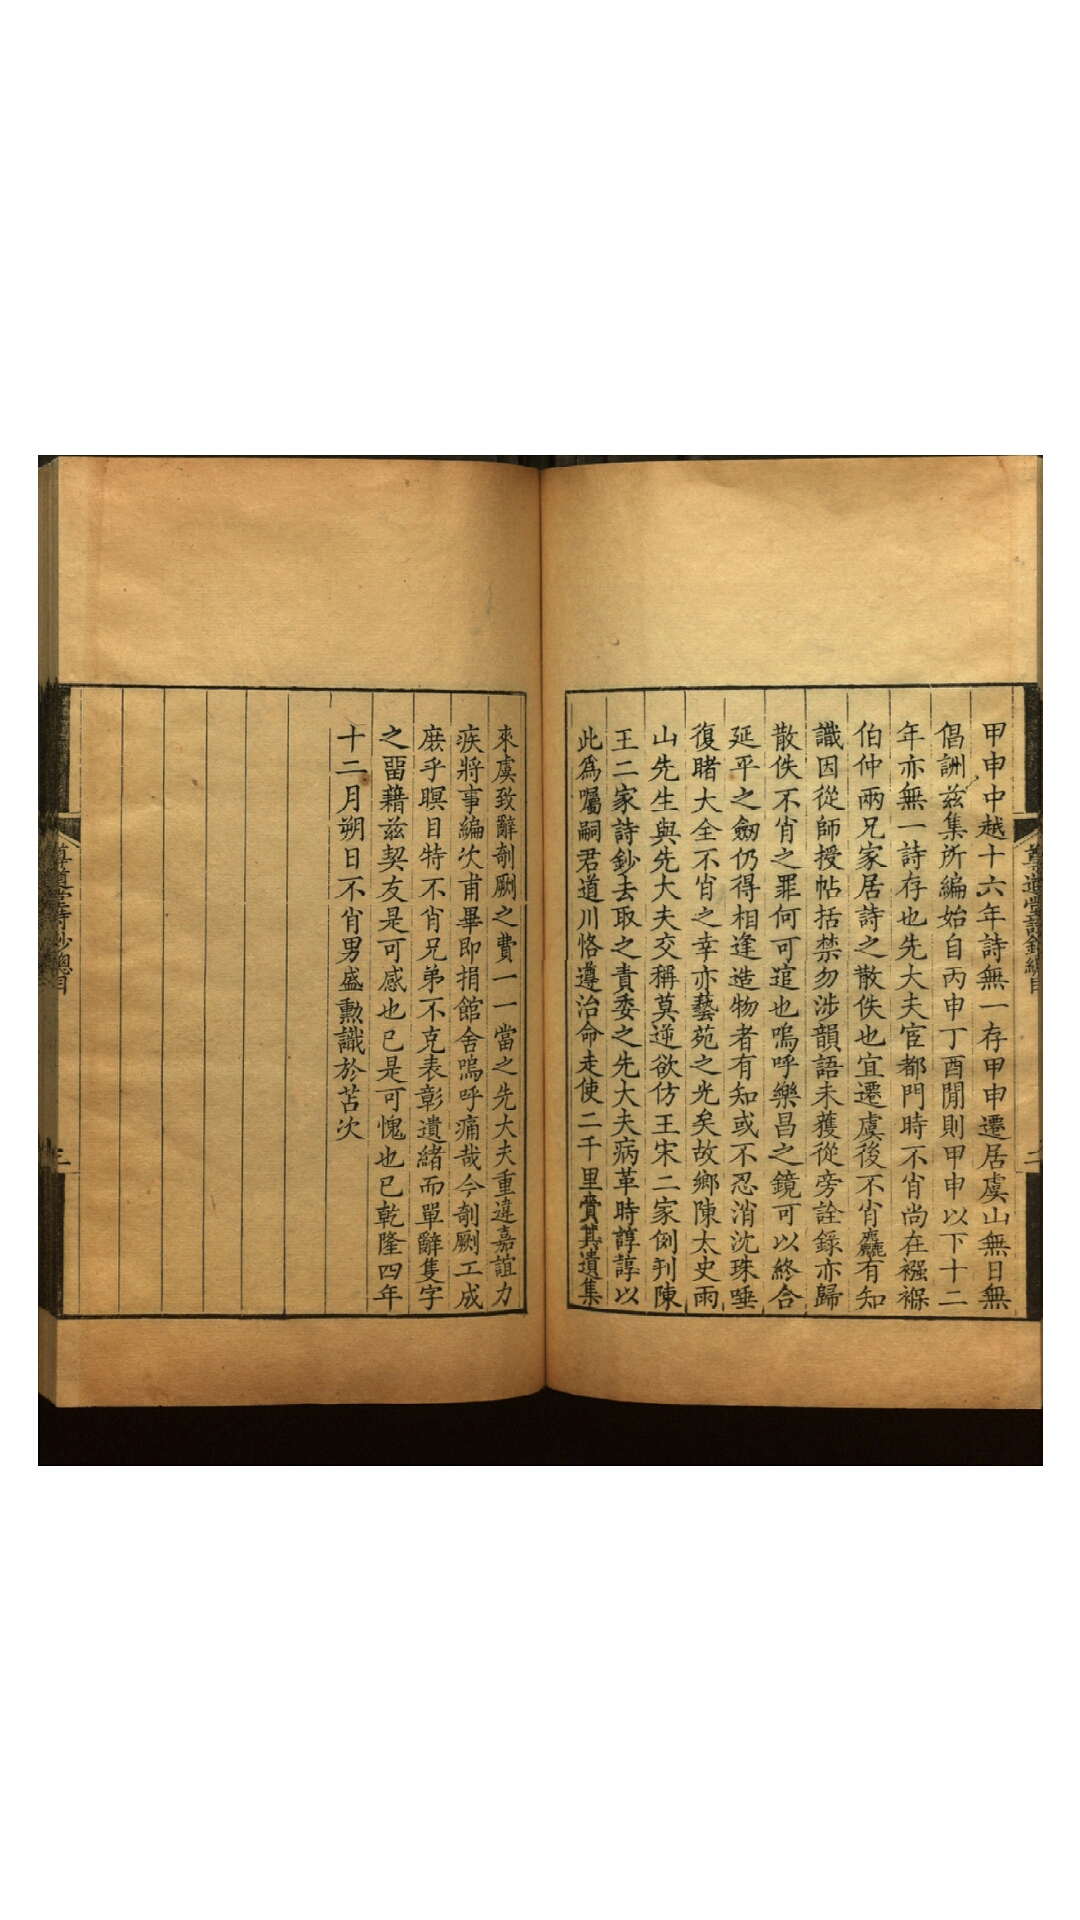 甲申中越十六年詩無一存甲申遷居虞山無日無
倡詶茲集所編始自丙申丁酉閒則甲申以下十二
年亦無一詩存也先大夫宦都門時不肖尚在襁褓
伯仲兩兄家居詩之散佚也宜遷虞後不肖麤有知
識因從師授帖括禁勿涉韻語未獲從旁詮錄亦歸
散佚不肖之罪何可逭也嗚呼樂昌之鏡可以終合
延平之劒仍得相逢造物者有知或不忍消沈珠唾
復睹大全不肖之幸亦藝苑之光矣故鄉陳太史雨
山先生與先大夫交稱莫逆欲仿王宋二家例刋陳
王二家詩鈔去取之責委之先大夫病革時諄諄以
此爲囑嗣君道川恪遵治命走使二千里賫其遺集
來虞致辭剞劂之費一一當之先大夫重違嘉誼力
疾將事編次甫畢即捐館舍嗚呼痛哉今剞劂工成
庶乎瞑目特不肖兄弟不克表彰遺緒而單辭隻字
之畱藉茲契友是可感也已是可愧也已乾隆四年
十二月朔日不肖男盛勲識於苫次
尊道堂詩鈔總目
二
尊道堂詩鈔總目
三